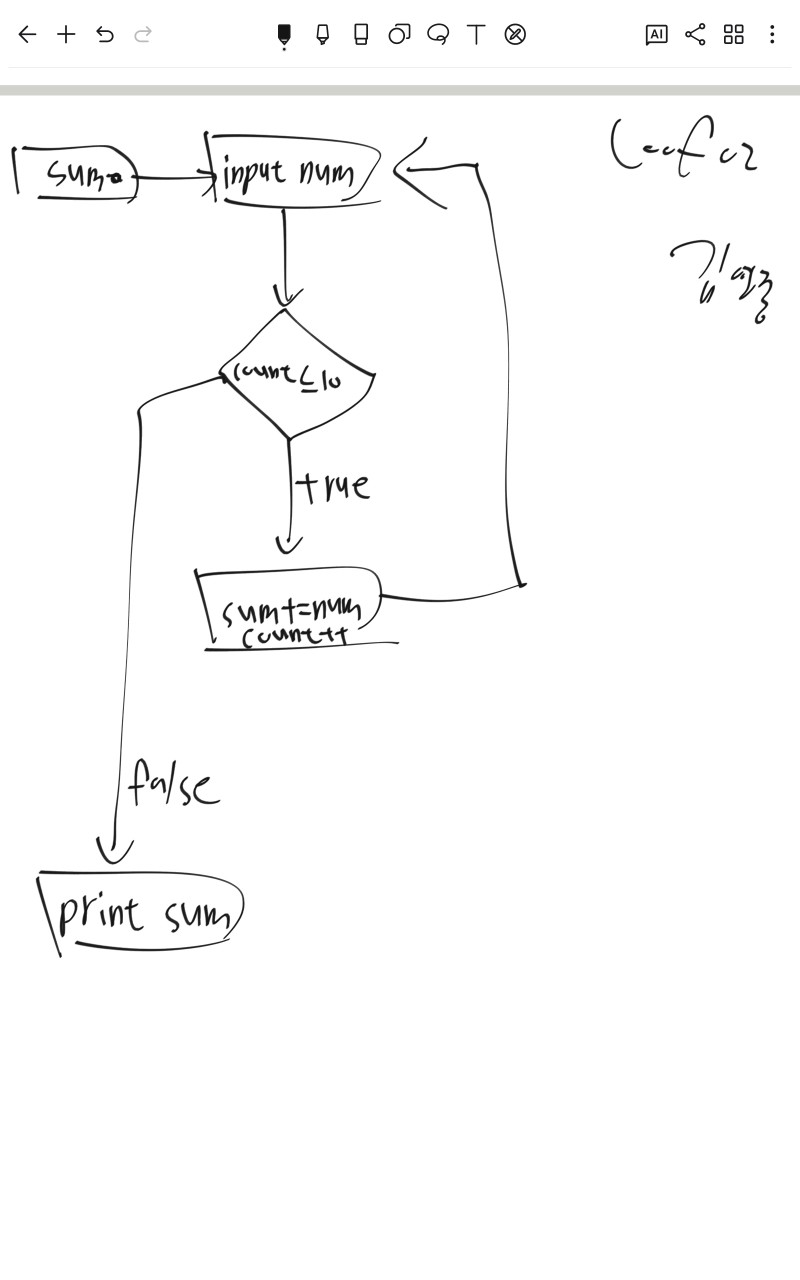 sum=0
input num
count≤10
true
sum+=num
count++
false
print sum